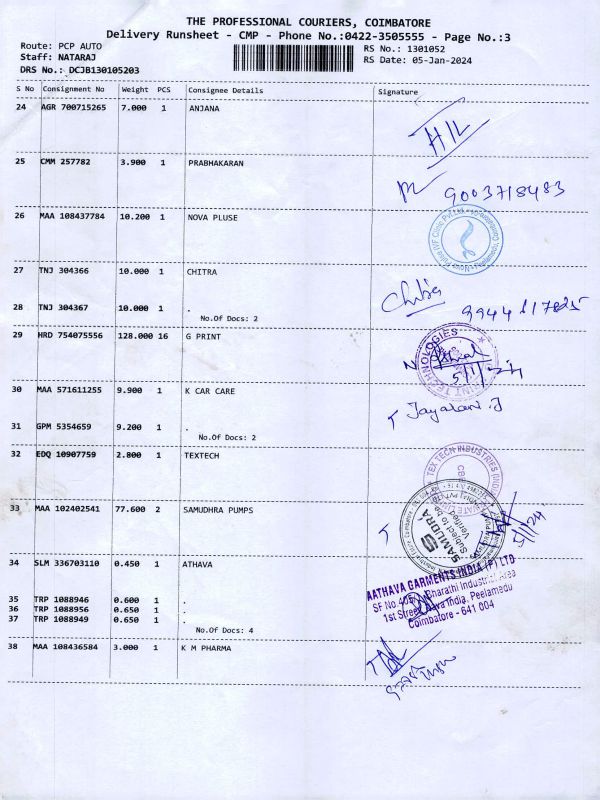 THE PROFESSIONAL COURIERS, COIMBATORE
Delivery Runsheet - CMP - Phone No.:0422-3505555 - Page No.:3
Route: PCP AUTO
RS No.: 1301052
Staff: NATARAJ
RS Date: 05-Jan-2024
DRS No.: DCJB130105203
S No Consignment No Weight PCS Consignee Details Signature
24 AGR 700715265 7.000 1 ANJANA
25 CMM 257782 3.900 1 PRABHAKARAN
9003718483
26 MAA 108437784 10.200 1 NOVA PLUSE
27 TNJ 304366 10.000 1 CHITRA
Chitra
28 TNJ 304367 10.000 1 .
No.Of Docs: 2
29 HRD 754075556 128.000 16 G PRINT
TECHNOLOGIES
5/1/24
30 MAA 571611255 9.900 1 K CAR CARE
31 GPM 5354659 9.200 1 .
No.Of Docs: 2
32 EDQ 10907759 2.800 1 TEXTECH
TEX TECH INDUSTRIES
33 MAA 102402541 77.600 2 SAMUDHRA PUMPS
SAMUDRA
Subject to be
Verified
5/1/24
34 SLM 336703110 0.450 1 ATHAVA
AATHAVA GARMENTS INDIA (P) LTD
SF No. Bharathi Industrial Area
1st Street, Nava India, Peelamedu
Coimbatore - 641 004
35 TRP 1088946 0.600 1 .
36 TRP 1088956 0.650 1 .
37 TRP 1088949 0.650 1 .
No.Of Docs: 4
38 MAA 108436584 3.000 1 K M PHARMA